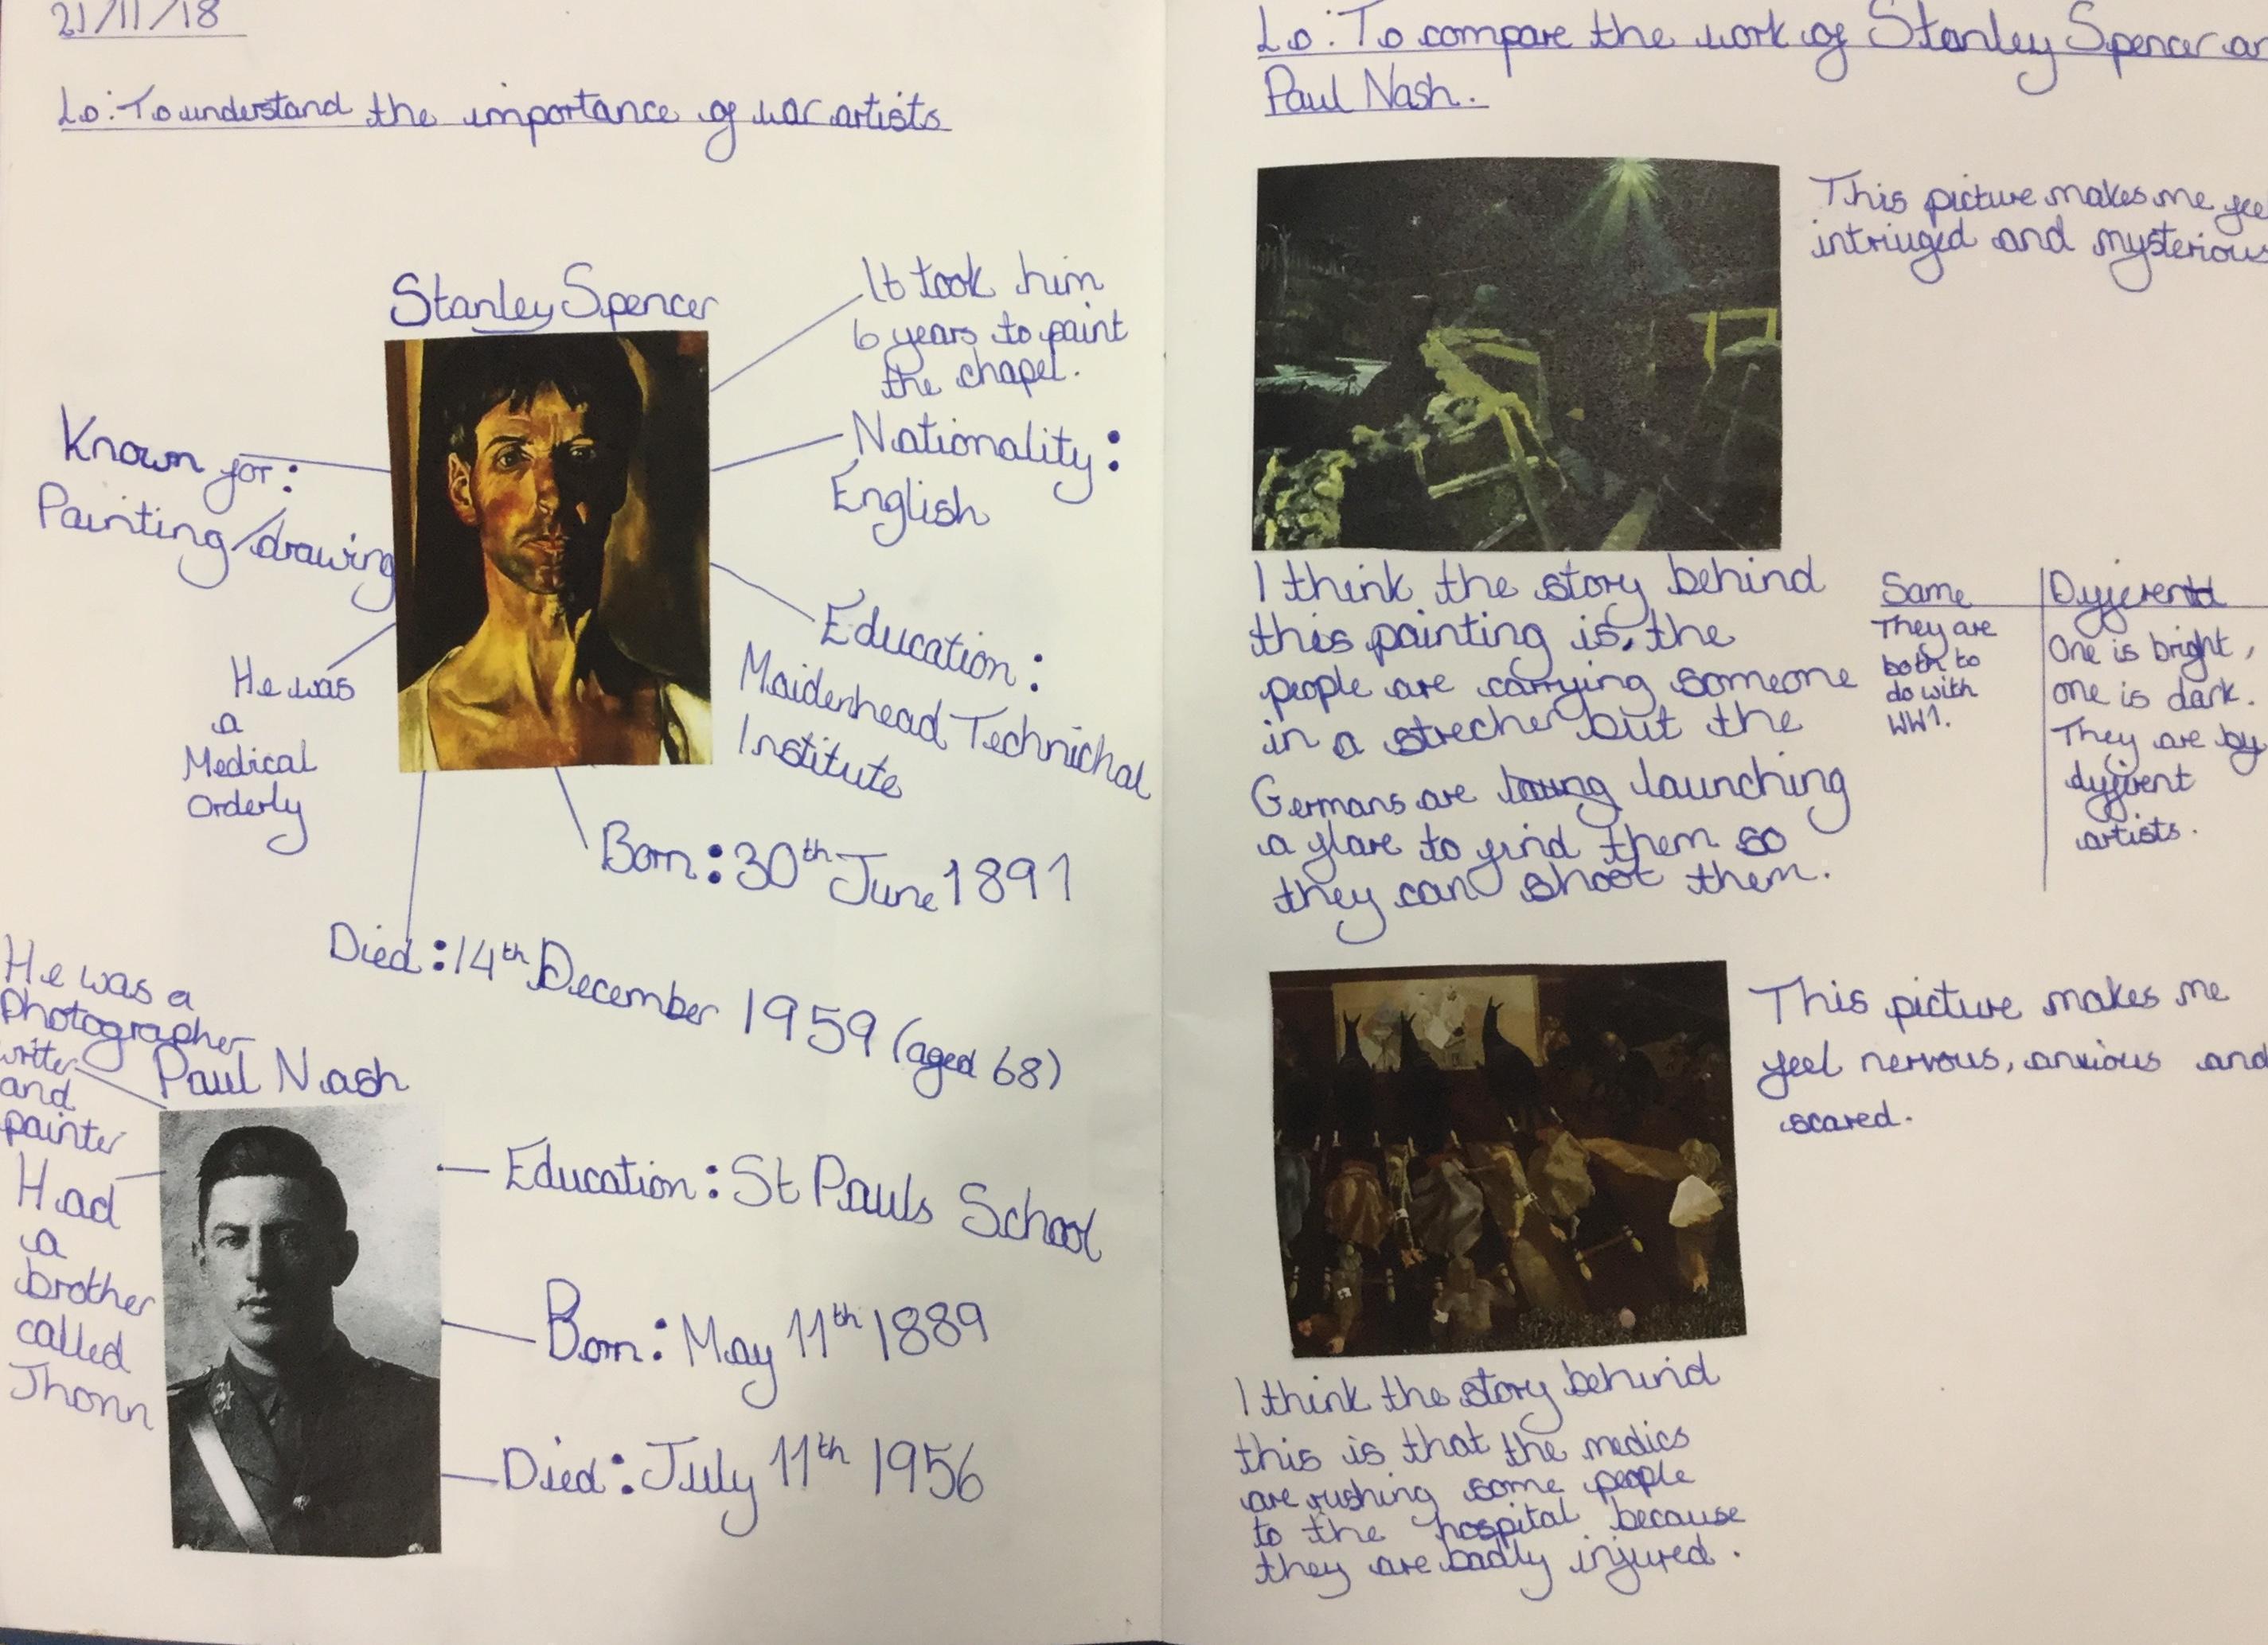 21/11/18
Lo: To understand the importance of war artists
Stanley Spencer
It took him
6 years to paint
the chapel.
Known for:
Painting/drawing
Nationality:
English
He was
a
Medical
Orderly
Education:
Maidenhead Technichal
Institute
Born: 30th June 1891
Died: 14th December 1959 (aged 68)
He was a
Photographer
writer
and
painter
Paul Nash
Had
a
brother
called
Jhonn
Education: St Pauls School
Born: May 11th 1889
Died: July 11th 1956
Lo: To compare the work of Stanley Spencer
Paul Nash.
This picture makes me
intriuged and mysterious
I think the story behind
this painting is, the
people are carrying someone
in a strecher but the
Germans are launching
a flare to find them so
they can shoot them.
Same
They are
both to
do with
WW1.
Different
One is bright,
one is dark.
They are by
diffrent
artists.
This picture makes me
feel nervous, anxious and
scared.
I think the story behind
this is that the medics
are rushing some people
to the hospital because
they are badly injured.